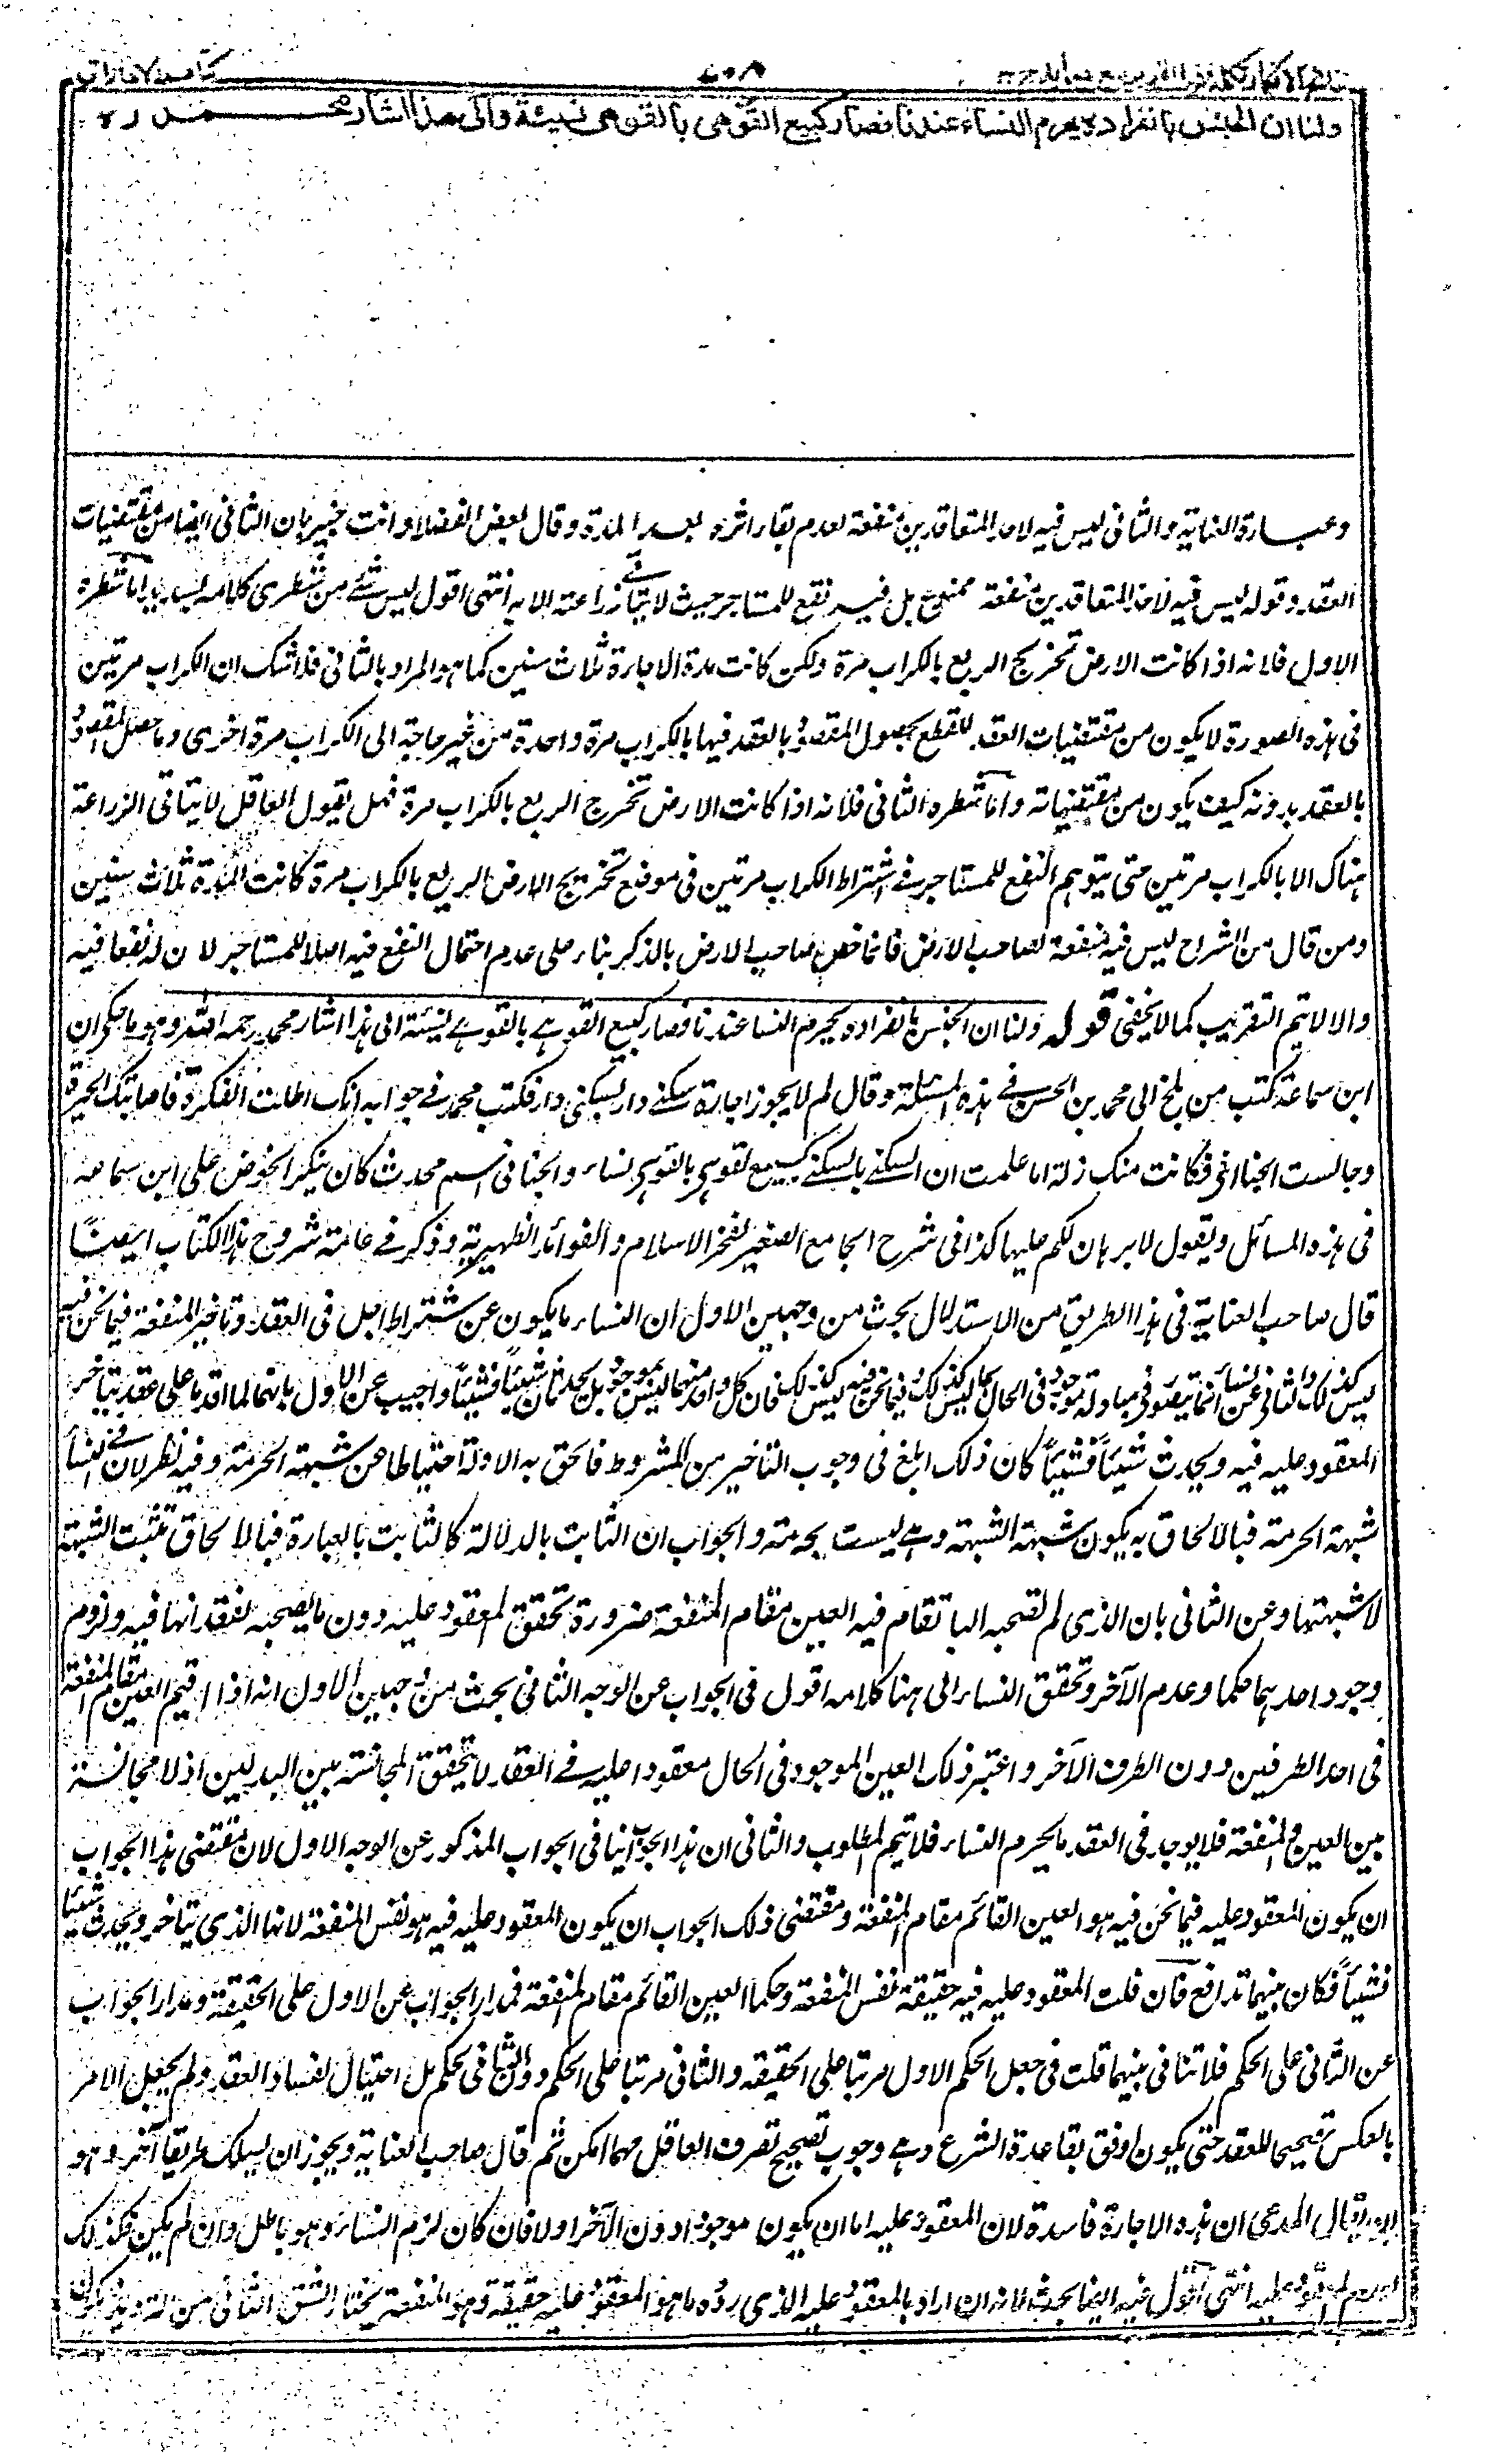 نتائج الافكار تكملة فتح القدير مع هدايه ج ٣
٧٠٨
كتاب الاجارات
ولنا ان الجنس بانفراده يحرم النساء عندنا فصار كبيع القوهى بالقوهى نسيئة والى هذا اشار محمد رح
وعبارة العناية والثانى ليس فيه لاحد المتعاقدين منفعة لعدم بقاء اثره بعد المدة وقال بعض الفضلاء وانت خبير بان الثانى ايضا من مقتضيات
العقد وقوله ليس فيه لاحد المتعاقدين منفعة ممنوع بل فيه نفع للمستاجر حيث لا يتاتى زراعته الا به انتهى اقول ليس شئ من شطرى كلامه بسديد اما شطره
الاول فلانه اذا كانت الارض تخرج الريع بالكراب مرة ولكن كانت مدة الاجارة ثلاث سنين كما هو المراد بالثانى فلا شك ان الكراب مرتين
فى هذه الصورة لا يكون من مقتضيات العقد للقطع بحصول المقصود بالعقد فيها بالكراب مرة واحدة من غير حاجة الى الكراب مرة اخرى وما حصل المقصود
بالعقد بدونه كيف يكون من مقتضياته واما شطره الثانى فلانه اذا كانت الارض تخرج الريع بالكراب مرة فهل يقول العاقل لا يتاتى الزراعة
هناك الا بالكراب مرتين حتى يتوهم النفع للمستاجر فى اشتراط الكراب مرتين فى موضع تخريج الارض الريع بالكراب مرة كانت المدة ثلاث سنين
ومن قال من الشراح ليس فيه منفعة لصاحب الارض فانما خص صاحب الارض بالذكر بناء على عدم احتمال النفع فيه اصلا للمستاجر لا ن له نفعا فيه
والا لا يتم التقريب كما لا يخفى قوله ولنا ان الجنس بانفراده يحرم النسا عندنا فصار كبيع القوهى بالقوهى نسيئة الى هذا اشار محمد رحمه الله وهو ما حكى ان
ابن سماعة كتب من بلخ الى محمد بن الحسن فى هذه المسئلة وقال لم لا يجوز اجارة سكنى دار بسكنى دار فكتب محمد فى جوابه انك اطلت الفكرة فاصابتك الحيرة
وجالست الجنائى فكانت منك زلة اما علمت ان السكنى بالسكنى كبيع القوهى بالقوهى نساء والجنائى اسم محدث كان ينكر الخوض على ابن سماعة
فى هذه المسائل ويقول لا برهان لكم عليها كذا فى شرح الجامع الصغير لفخر الاسلام والفوائد الظهيرية وذكر فى عامة شروح هذا الكتاب ايضا
قال صاحب العناية فى هذا الطريق من الاستدلال بحث من وجهين الاول ان النساء ما يكون عن اشتراط اجل فى العقد وتاخير المنفعة فيما نحن فيه
ليس كذلك والثانى ان النساء انما يتصور فى مبادلة موجود فى الحال بما ليس كذلك وفيما نحن فيه ليس كذلك فان كل واحد منهما ليس بموجود بل يحدثان شيئا فشيئا واجيب عن الاول بانهما لما اقدما على عقد يتاخر
المعقود عليه فيه ويحدث شيئا فشيئا كان ذلك ابلغ فى وجوب التاخير من المشروط فالحق به الاولة احتياطا عن شبهة الحرمة وفيه نظر لان فى النسا
شبهة الحرمة فبالالحاق به يكون شبهة الشبهة وهى ليست بمحرمة والجواب ان الثابت بالدلالة كالثابت بالعبارة فبالالحاق تثبت الشبهة
لا شبهتها وعن الثانى بان الذى لم تصحبه الباء تقام فيه العين مقام المنفعة ضرورة تحقق المعقود عليه دون ما يصحبه لفقدانها فيه ولزم
وجود احدهما حكما وعدم الآخر وتحقق النساء الى هنا كلامه اقول فى الجواب عن الوجه الثانى بحث من وجهين الاول انه اذا اقيم العين مقام المنفعة
فى احد الطرفين دون الطرف الآخر واعتبر ذلك العين الموجود فى الحال معقودا عليه فى العقد لا يتحقق المجانسة بين البدلين اذ لا مجانسة
بين العين والمنفعة فلا يوجد فى العقد ما يحرم النساء فلا يتم المطلوب والثانى ان هذا الجواب ينافى الجواب المذكور عن الوجه الاول لان مقتضى هذا الجواب
ان يكون المعقود عليه فيما نحن فيه هو العين القائم مقام المنفعة ومقتضى ذلك الجواب ان يكون المعقود عليه فيه هو نفس المنفعة لانها الذى يتاخر ويحدث شيئا
فشيئا فكان بينهما تدافع فان قلت المعقود عليه فيه حقيقة نفس المنفعة وحكما العين القائم مقام المنفعة فمدار الجواب عن الاول على الحقيقة ومدار الجواب
عن الثانى على الحكم فلا تنافى بينهما قلت فى جعل الحكم الاول مرتبا على الحقيقة والثانى مرتبا على الحكم دون الثانى تحكم بل احتيال لفساد العقد ولم يجعل الامر
بالعكس تصحيحا للعقد حتى يكون اوفق بقاعدة الشرع وهى وجوب تصحيح تصرف العاقل مهما امكن ثم قال صاحب العناية ويجوز ان يسلك طريقا آخر وهو
ان يقال المدعى ان هذه الاجارة فاسدة لان المعقود عليه اما ان يكون موجودا دون الآخر اولا فان كان لزم النساء وهو باطل وان لم يكن فكذلك
لعدم المعقود عليه انتهى اقول فيه ايضا بحث لانه ان اراد بالمعقود عليه الذى ردده ما هو المعقود عليه حقيقة وهو المنفعة يختار الشق الثانى من